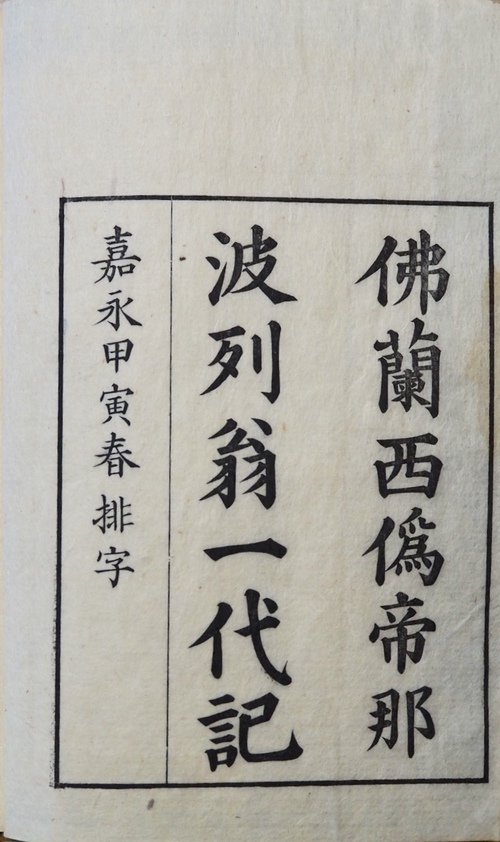 佛蘭西僞帝那
波列翁一代記
嘉永甲寅春排字